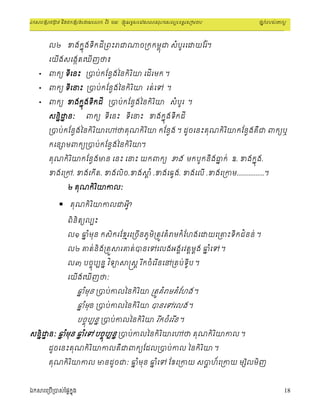 ល៤ ខាងក្នុងទឹកដីព្រះរាជាណាចក្រកម្ពុជា សំបូរដោយរ៉ែ។
យើងសង្កេតឃើញថាៈ
• ពាក្យ ទីនេះ ប្រាប់កន្លែងនៃកិរិយា ដើរមក ។
• ពាក្យ ទីនោះ ប្រាប់កន្លែងនៃកិរិយា រត់ទៅ ។
• ពាក្យ ខាងក្នុងទឹកដី ប្រាប់កន្លែងនៃកិរិយា សំបូរ ។
សន្និដ្ឋានៈ ពាក្យ ទីនេះ ទីនោះ ខាងក្នុងទឹកដី
ប្រាប់កន្លែងនៃកិរិយាហៅថាគុណកិរិយា កន្លែង ។ ដូចនេះគុណកិរិយាកន្លែងគឺជា ពាក្យឬ
កន្សោមពាក្យប្រាប់កន្លែងនៃកិរិយា។
គុណកិរិយាកន្លែងមាន នេះ នោះ យកពាក្យ ខាង មកបូកនឹងធ្នាក់ ឧ. ខាងក្នុង,
ខាងក្រៅ, ខាងកើត, ខាងលិច,ខាងស្តាំ ,ខាងឆ្វេង, ខាងលើ ,ខាងក្រោម...............។
៤ គុណកិរិយាកាលៈ
គុណកិរិយាកាលជាអ្វី?
ពិនិត្យល្បះ
ល១ ឆ្នាំមុន កសិករខ្មែរច្រើនភូមិត្រូវគំរាមកំហែងដោយគ្រោះទឹកជំនន់ ។
ល៤ តាត់នឹងត្រូសារគាត់បានទៅលេងអង្គរវត្តម្តង ឆ្នាំទៅ ។
ល៣ បច្ចុប្បន្ន វិទ្យាសាស្ត្រ រីកចំរើននៅគ្រប់ទ្វីប ។
យើងឃើញថាៈ
ឆ្នាំមុន ប្រាប់កាលនៃកិរិយា ត្រូវគំរាមកំហែង ។
ឆ្នាំមុខ ប្រាប់កាលនៃកិរិយា បានទៅលេង ។
បច្ចុប្បន្ន ប្រាប់កាលនៃកិរិយា រីកចំរើន ។
សន្និដ្ឋានៈ ឆ្នាំមុន ឆ្នាំទៅ បច្ចុប្បន្ន ប្រាប់កាលនៃកិរិយាហៅថា គុណកិរិយាកាល ។
ដូចនេះគុណកិរិយាកាលគឺជាពាក្យដែលប្រាប់កាល នៃកិរិយា ។
គុណកិរិយាកាល មានដូចជាៈ ឆ្នាំមុន ឆ្នាំទៅ ខែក្រោយ សប្តាហ៍ក្រោយ ម្សិលមិញ
ឯកសារប្រើប្រាស់ផ្ទៃក្នុង 18